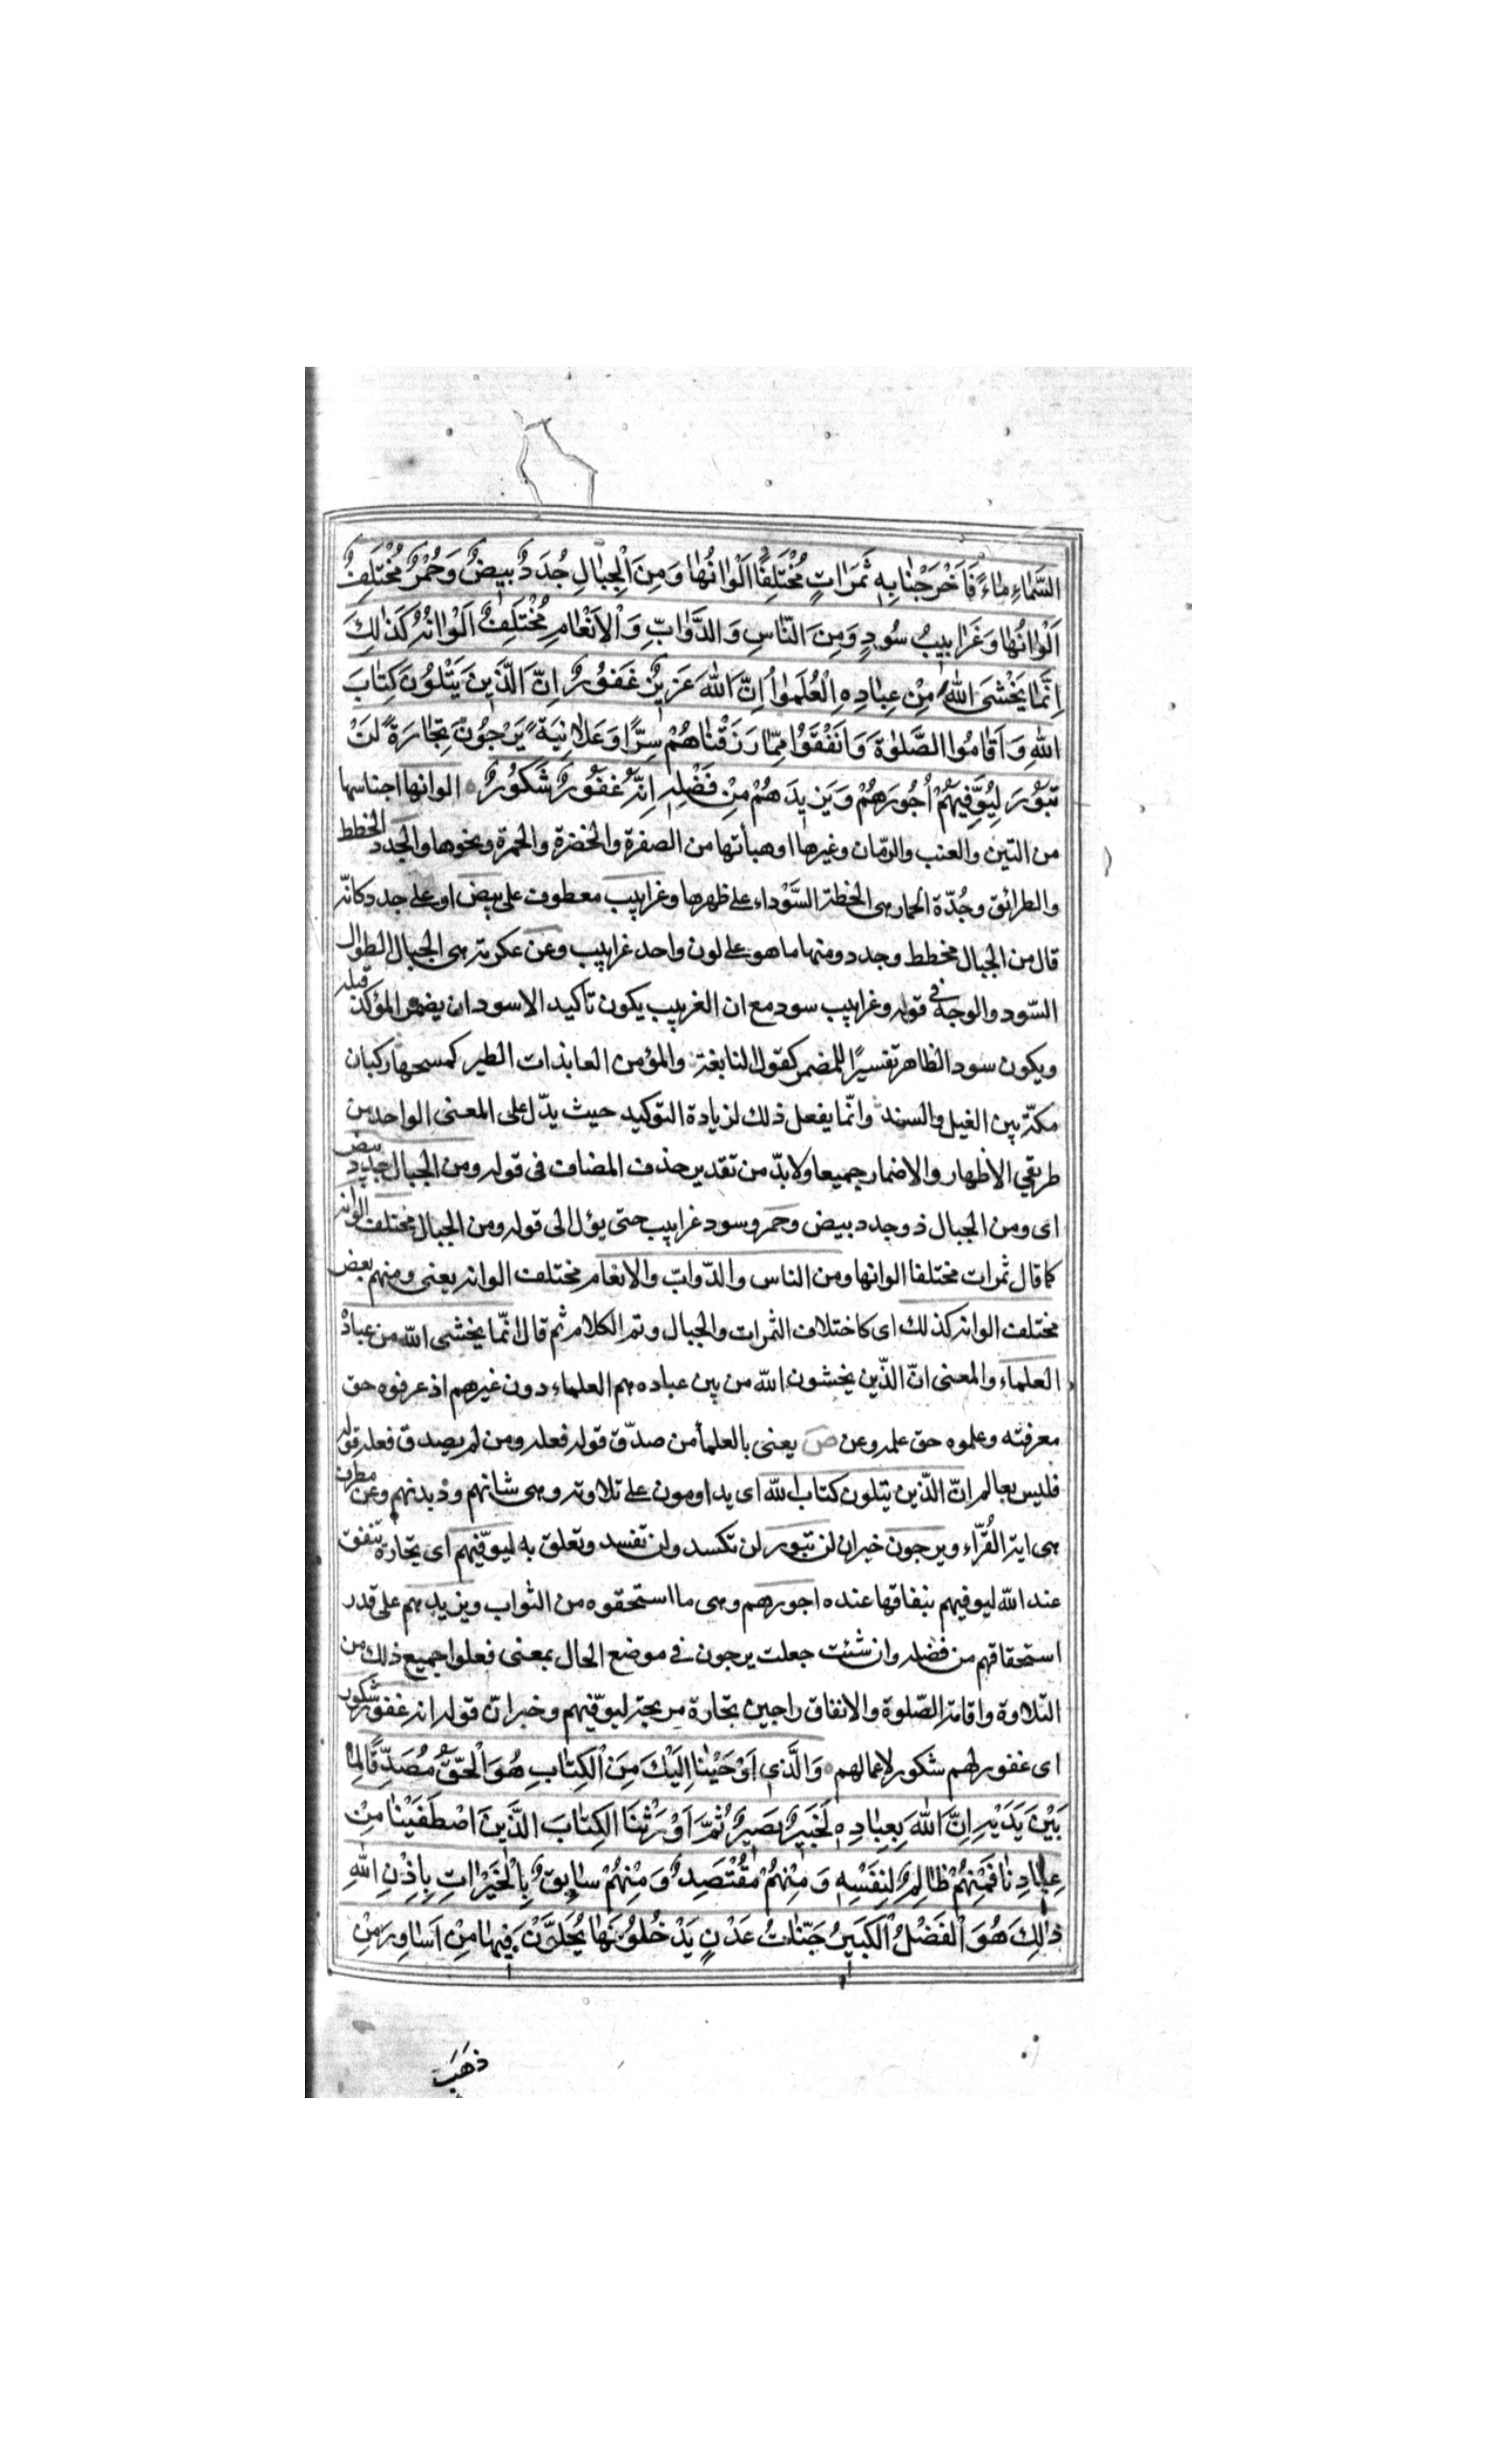 السَّمٰاءِ مٰاءً فَاَخْرَجْنٰا بِهِ ثَمَرٰاتٍ مُخْتَلِفًا اَلْوٰانُهٰا وَمِنَ الْجِبٰالِ جُدَدٌ بِيضٌ وَحُمْرٌ مُخْتَلِفٌ
اَلْوٰانُهٰا وَغَرٰابِيبُ سُودٌ وَمِنَ النّٰاسِ وَالدَّوٰابِّ وَالْاَنْعٰامِ مُخْتَلِفٌ اَلْوٰانُهُ كَذٰلِكَ
اِنَّمٰا يَخْشَى اللهَ مِنْ عِبٰادِهِ الْعُلَمٰواُ اِنَّ اللهَ عَزِيزٌ غَفُورٌ اِنَّ الَّذِينَ يَتْلُونَ كِتٰابَ
اللهِ وَاَقٰامُوا الصَّلٰوةَ وَاَنْفَقُوا مِمّٰا رَزَقْنٰاهُمْ سِرًّا وَعَلٰانِيَةً يَرْجُونَ تِجٰارَةً لَنْ
تَبُورَ لِيُوَفِّيَهُمْ اُجُورَهُمْ وَيَزِيدَهُمْ مِنْ فَضْلِهِ اِنَّهُ غَفُورٌ شَكُورٌ الوانها اجناسها
من التين والعنب والرمّان وغيرها او هيأتها من الصفرة والخضرة والحمرة ونحوها والجدد الخطط
والطرائق وجُدّة الحمار هى الخطة السَّوْداء على ظهرها وغرابيب معطوف على بيض او على جدد كانّه
قال من الجبال مخطط وجدد ومنها ما هو على لون واحد غرابيب وعن عكرمة هى الجبال الطوال
السّود والوجه فى قوله وغرابيب سود مع ان الغربيب يكون تاكيد الاسود ان يضمر المؤكد قبله
ويكون سود الظاهر تفسيرًا للمضمر كقول النابغة والمؤمن العائذات الطير كمسحها ركبان
مكّة بين الغيل والسند وانّما يفعل ذلك لزيادة التوكيد حيث يدّل على المعنى الواحد من
طريقي الاظهار والاضمار جميعا ولا بدّ من تقدير حذف المضاف فى قوله ومن الجبال جدد بيض
اى ومن الجبال ذو جدد بيض وحمر وسود غرابيب حتى يؤل الى قوله ومن الجبال مختلف الوانه
كما قال ثمرات مختلفا الوانها ومن الناس والدّوابّ والانعام مختلف الوانه يعنى ومنهم بعض
مختلف الوانه كذلك اى كاختلاف الثمرات والجبال وتم الكلام ثم قال انّما يخشى الله من عباده
العلماء والمعنى انّ الذّين يخشون الله من بين عباده هم العلماء دون غيرهم اذ عرفوه حق
معرفته وعلموه حق علمه وعن ص يعنى بالعلماء من صدّق قوله فعله ومن لم يصدق فعله قوله
فليس بعالم انّ الذّين يتلون كتاب الله اى يداومون على تلاوته وهى شانهم وديدنهم وعن مطرف
هى اية القُرّاء ويرجون خبر ان لن تبور لن تكسد ولن تفسد وتعلق به ليوفّيهم اى تجارة تنفق
عند الله ليوفيهم بنفاقها عنده اجورهم وهى ما استحقوه من الثواب ويزيدهم على قدر
استحقاقهم من فضله وان شئت جعلت يرجون فى موضع الحال بمعنى فعلوا جميع ذلك من
التلاوة واقامة الصّلوة والانفاق راجين تجارة مربحة ليوفّيهم وخبر انّ قوله انه غفور شكور
اى غفور لهم شكور لاعمالهم وَالَّذِى اَوْحَيْنٰا اِلَيْكَ مِنَ الْكِتٰابِ هُوَ الْحَقُّ مُصَدِّقًا لِمٰا
بَيْنَ يَدَيْهِ اِنَّ اللهَ بِعِبٰادِهِ لَخَبِيرٌ بَصِيرٌ ثُمَّ اَوْرَثْنَا الكِتٰابَ الَّذِينَ اصْطَفَيْنٰا مِنْ
عِبٰادِنٰا فَمِنْهُمْ ظٰالِمٌ لِنَفْسِهِ وَمِنْهُمْ مُقْتَصِدٌ وَمِنْهُمْ سٰابِقٌ بِالْخَيْرٰاتِ بِاِذْنِ اللهِ
ذٰلِكَ هُوَ الْفَضْلُ الْكَبِيرُ جَنّٰاتُ عَدْنٍ يَدْخُلُونَهٰا يُحَلَّوْنَ فِيهٰا مِنْ اَسٰاوِرَ مِنْ
ذَهَبَ